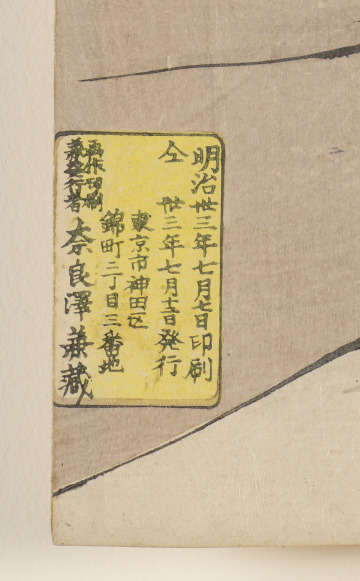 明治卅三年七月七日印刷
仝 卅三年七月十二日発行
東京市神田区
錦町三丁目三番地
画作印刷
兼発行者 奈良澤兼藏